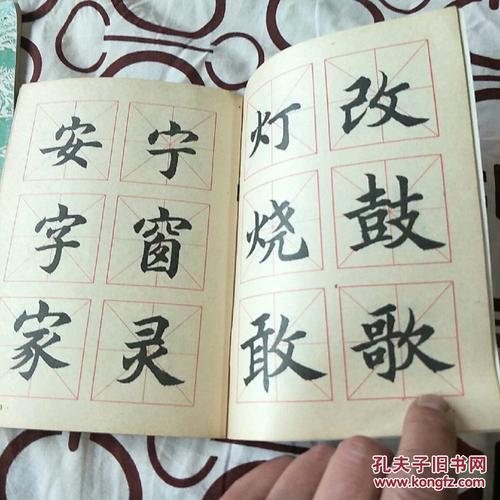 安 宁
字 窗
家 灵
灯 改
烧 鼓
敢 歌
孔夫子旧书网
www.kongfz.com